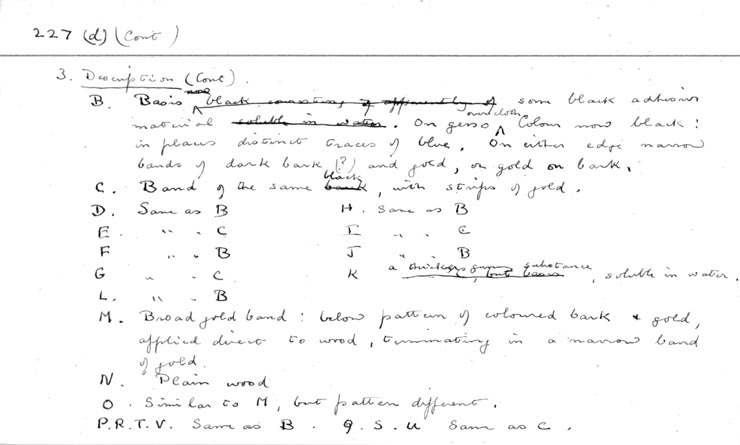 227 (d) (Cont)
3. Description (Cont).
B. Basis now black consisting of apparently of some black adhesive
material soluble in water. On gesso over cloth Colour now black:
in places distinct traces of blue. On either edge narrow
bands of dark bark (?) and gold, or gold on bark.
C. Band of the same bark black, with strips of gold.
D. Same as B H. Same as B
E " " C I " " C
F " " B J " B
G " " C K a thickers gum substance, but basis, soluble in water.
L. " " B
M. Broad gold band: below pattern of coloured bark & gold,
applied direct to wood, terminating in a narrow band
of gold.
N. Plain wood
O. Similar to M, but pattern different.
P.R.T.V. Same as B. Q.S.U Same as C.